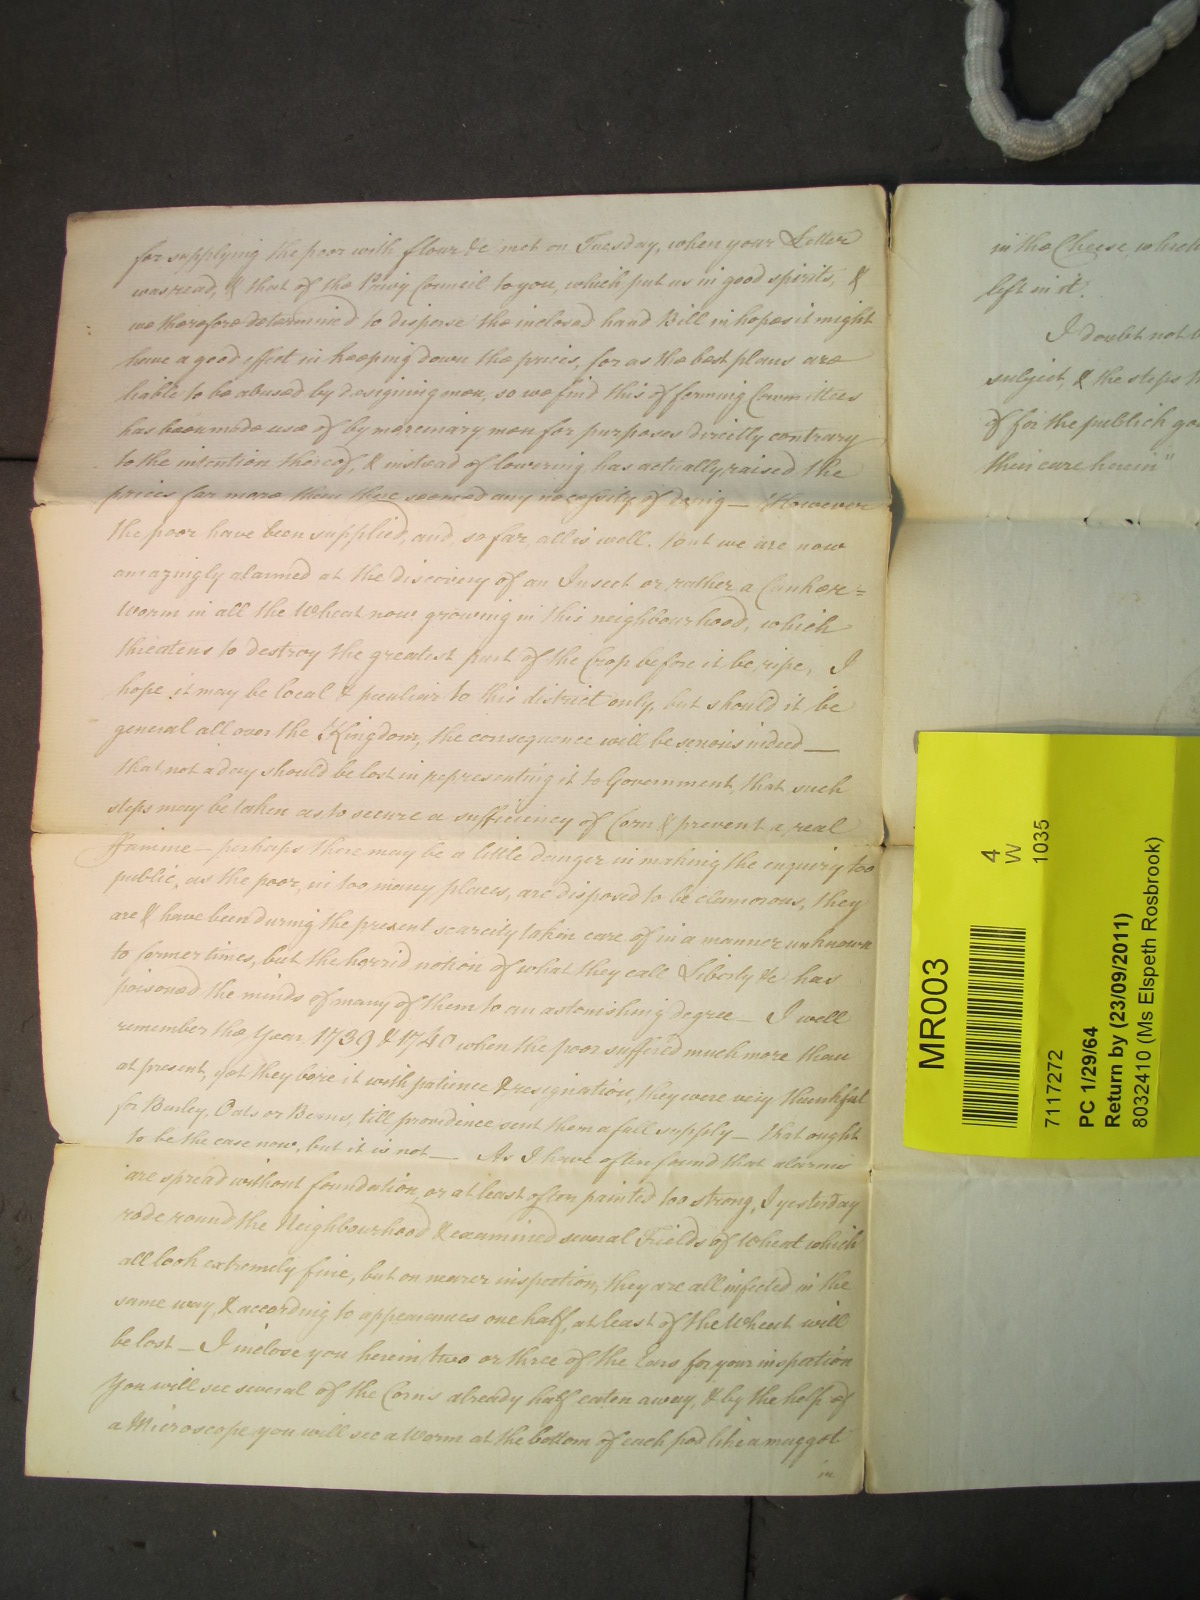 for supplying the poor with flour &c met on Tuesday, when your Letter
was read, & that of the Privy Council to you, which put us in good spirits, &
we therefore determin'd to disperse the inclosed hand Bill in hopes it might
have a good effect in keeping down the prices, for as the best plans are
liable to be abused by designing men, so we find this of forming Committees
has been made use of by mercinary men for purposes directly contrary
to the intention thereof, & instead of lowering has actually raised the
prices far more than there seemed any necessity of doing — However
the poor have been supplied, and, so far, all is well. but we are now
amazingly alarmed at the discovery of an Insect or rather a Canker=
worm in all the Wheat now growing in this neighbourhood, which
threatens to destroy the greatest part of the Crop before it be ripe, I
hope it may be local & peculiar to this district only, but should it be
general all over the Kingdom, the consequence will be serious indeed —
that not a day should be lost in representing it to Government, that such
steps may be taken as to secure a sufficiency of Corn & prevent a real
Famine — perhaps there may be a little danger in making the enquiry too
public, as the poor, in too many places, are disposed to be clamorous, they
are & have been during the present scarcity taken care of in a manner unknown
to former times, but the horrid notion of what they call Liberty &c has
poisoned the minds of many of them to an astonishing degree — I well
remember the Year 1739 & 1740 when the poor suffered much more than
at present, yet they bore it with patience & resignation, they were very thankful
for Barley, Oats or Beans, till providence sent them a full supply — that ought
to be the case now, but it is not — As I have often found that alarms
are spread without foundation, or at least often painted too strong, I yesterday
rode round the Neighbourhood & examined several Fields of Wheat which
all look extremely fine, but on nearer inspection, they are all infected in the
same way, & according to appearances one half, at least of the Wheat will
be lost — I inclose you herein two or three of the Ears for your inspection
You will see several of the Corns already half eaten away, & by the help of
a Microscope, you will see a Worm at the bottom of each pod like a maggot
in
in the Cheese, which
left in it.
I doubt not
subject, & the steps
of for the publick
their care herein"
MR003
4
W
1035
7117272
PC 1/29/64
Return by (23/09/2011)
8032410 (Ms Elspeth Rosbrook)